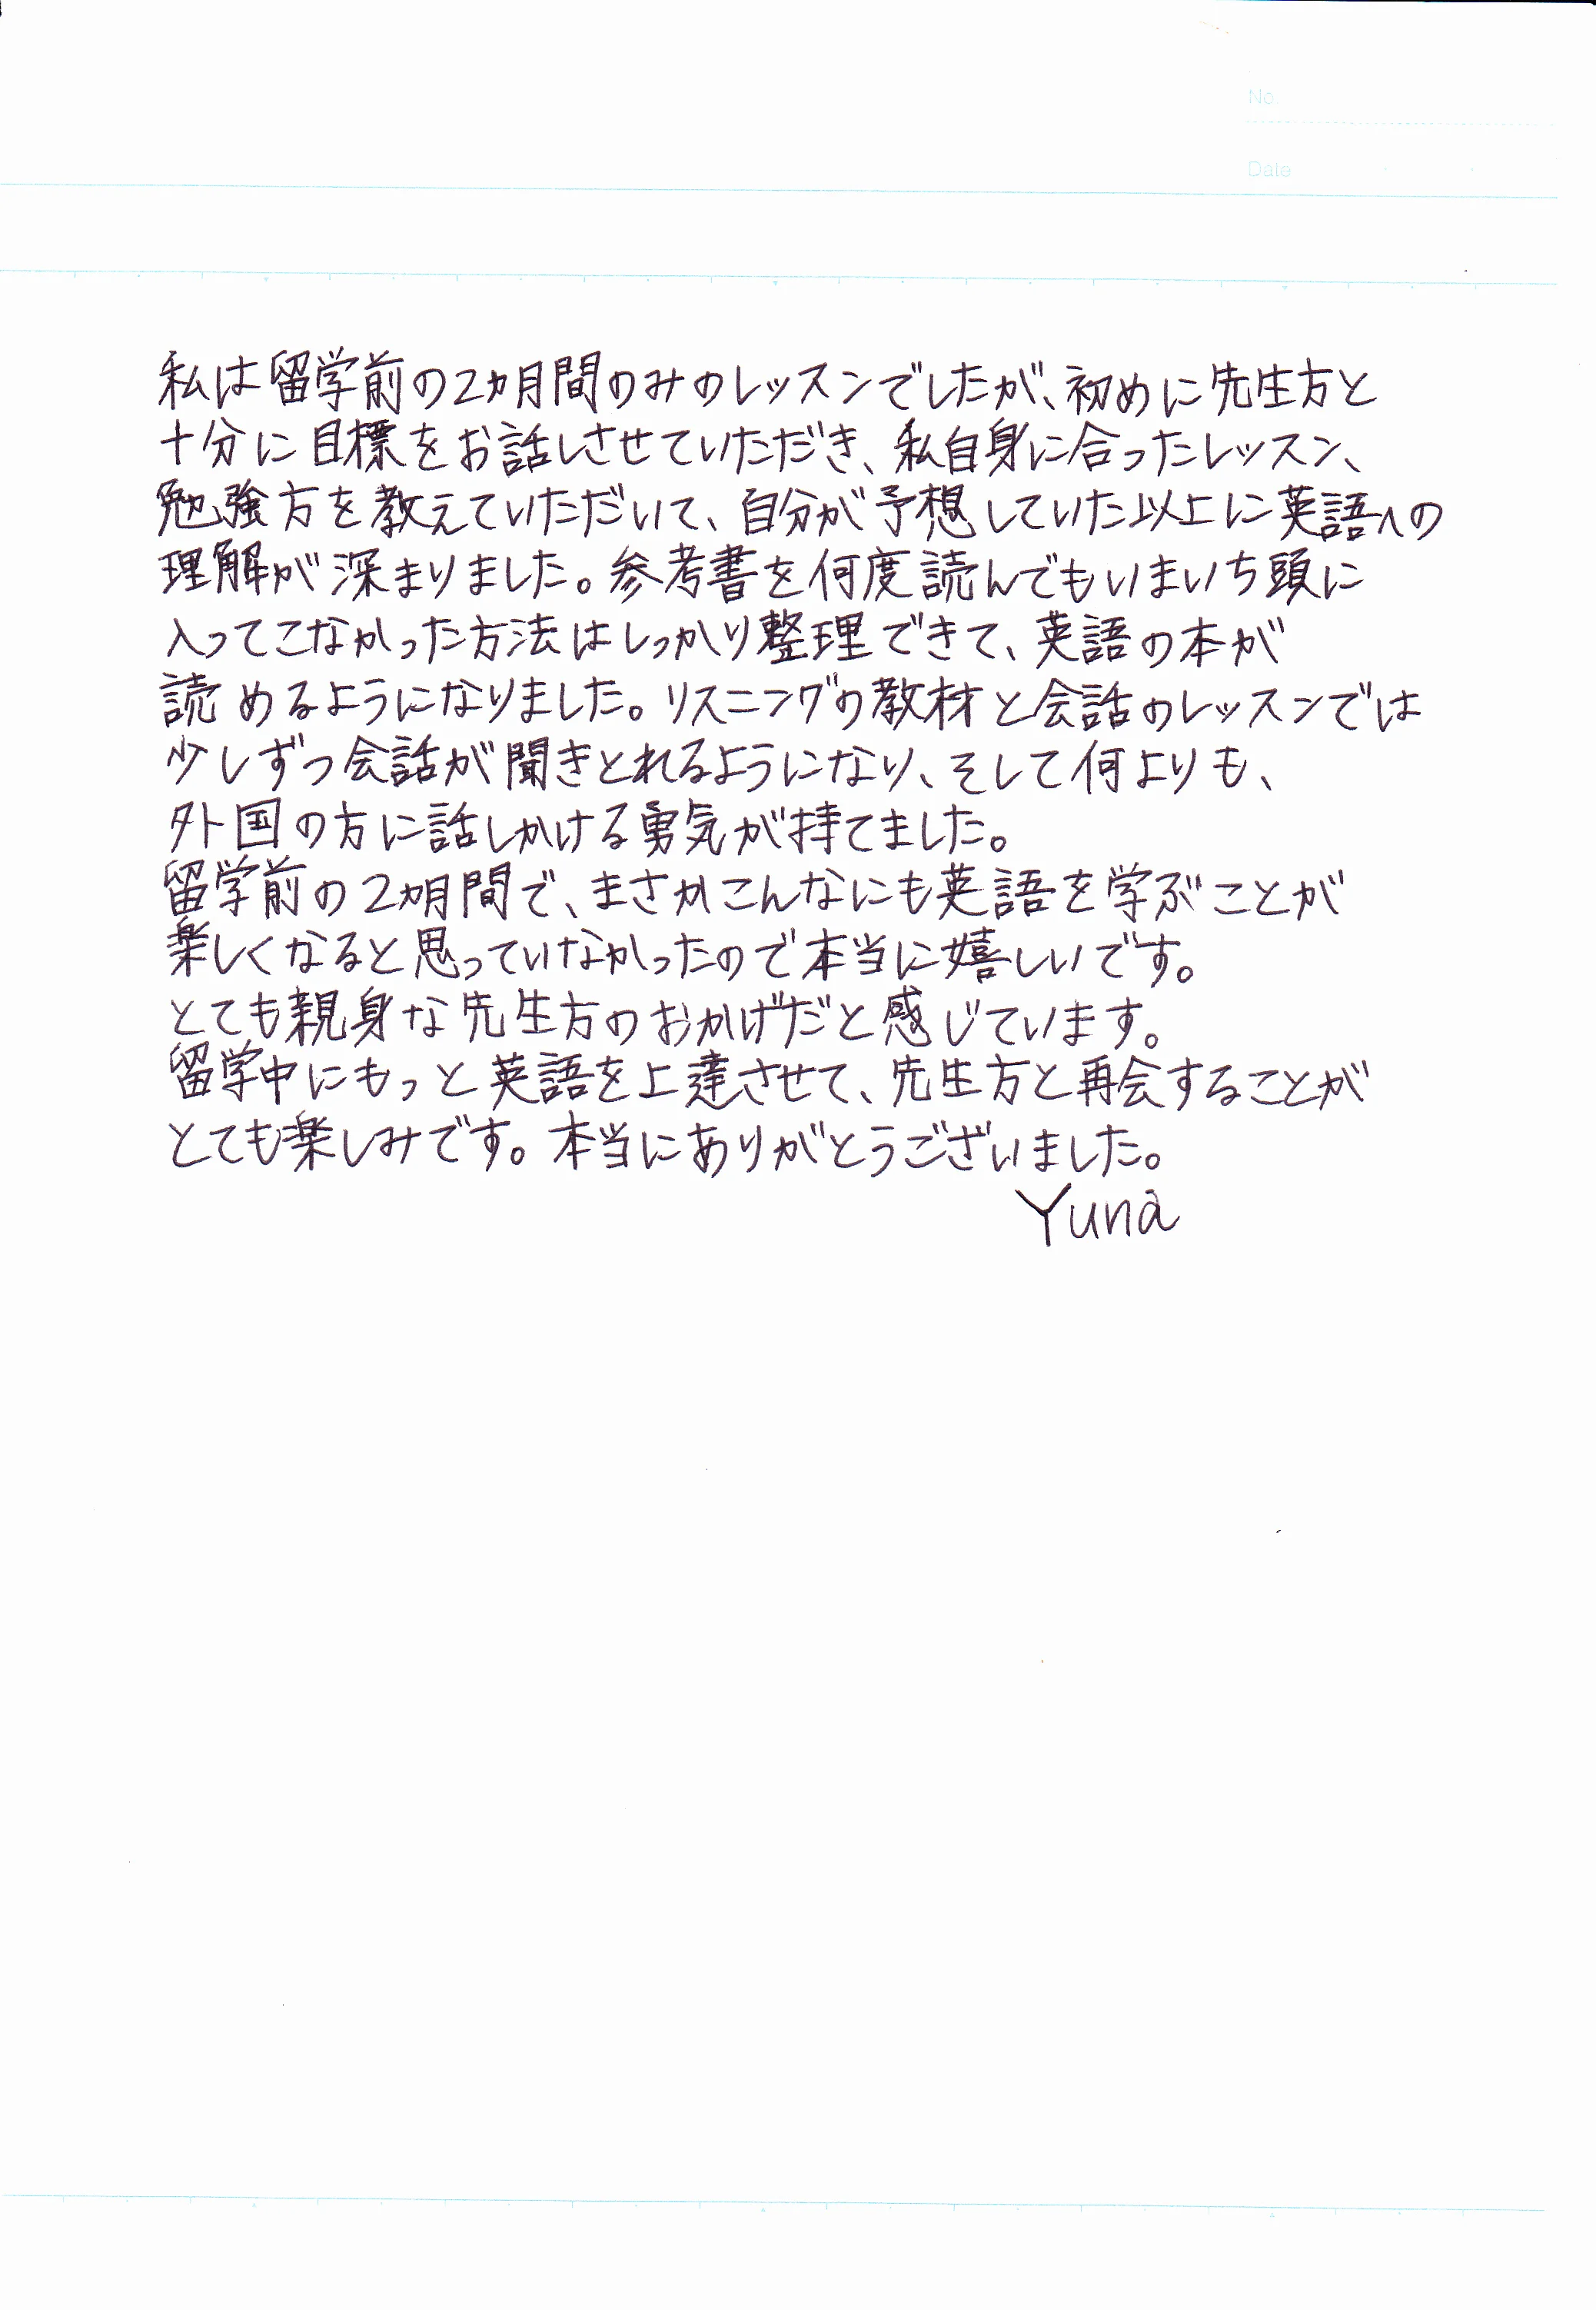 No.
Date
私は留学前の2ヵ月間のみのレッスンでしたが、初めに先生方と
十分に目標をお話しさせていただき、私自身に合ったレッスン、
勉強方を教えていただいて、自分が予想していた以上に英語への
理解が深まりました。参考書を何度読んでもいまいち頭に
入ってこなかった方法はしっかり整理できて、英語の本が
読めるようになりました。リスニングの教材と会話のレッスンでは
少しずつ会話が聞きとれるようになり、そして何よりも、
外国の方に話しかける勇気が持てました。
留学前の2ヵ月間で、まさかこんなにも英語を学ぶことが
楽しくなると思っていなかったので本当に嬉しいです。
とても親身な先生方のおかげだと感じています。
留学中にもっと英語を上達させて、先生方と再会することが
とても楽しみです。本当にありがとうございました。
Yuna